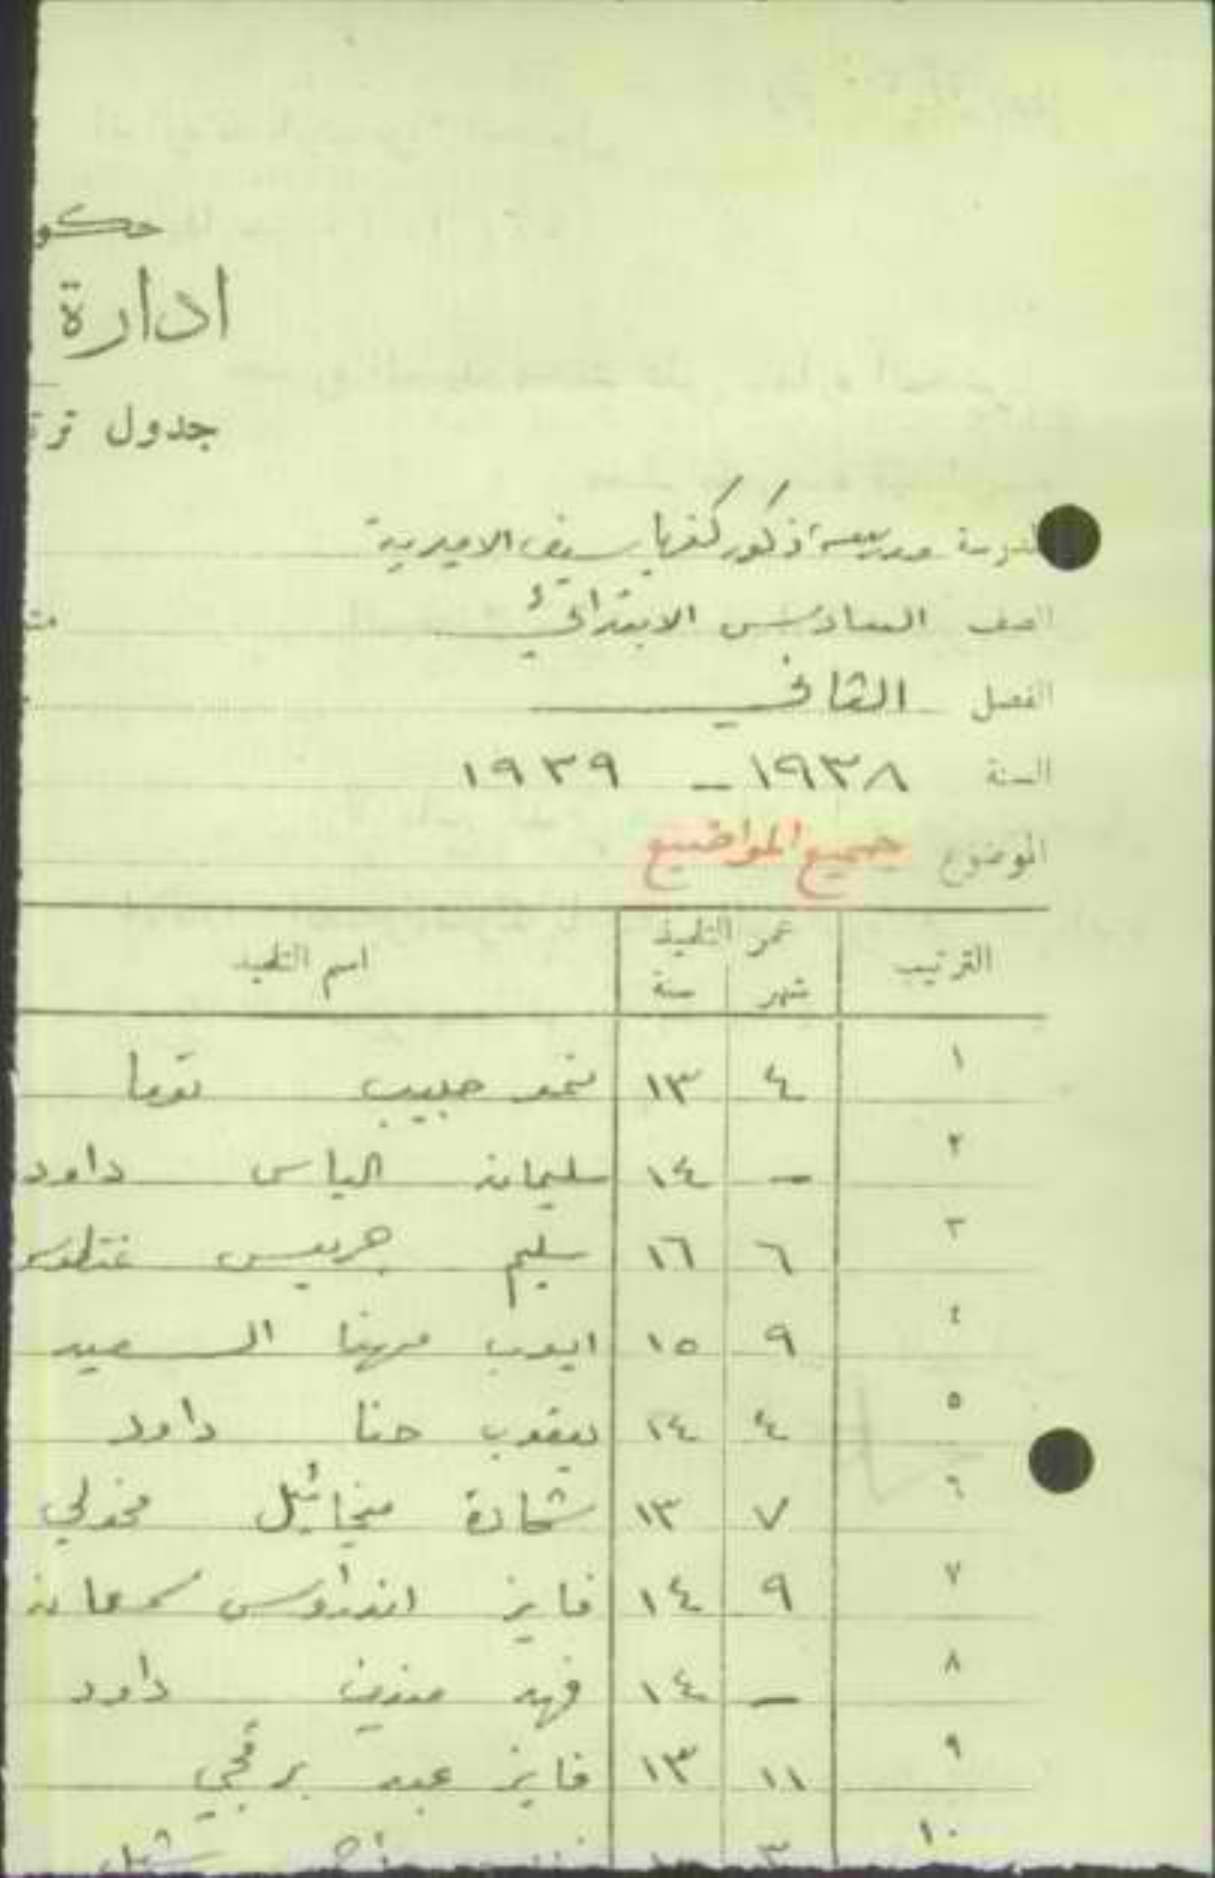 حكو
ادارة
جدول ترت
المدرسة مدرسة ذكور كفرياسيف الاميرية
الصف السادس الابتدائي
الفصل الثاني
السنة ١٩٣٨ – ١٩٣٩
الموضوع جميع المواضيع
الترتيب عمر التلميذ اسم التلميذ
شهر سنة
١ ٤ ١٣ حبيب توما
٢ – ١٤ سليمان الياس داود
٣ ٦ ١٦ سليم جريس
٤ ٩ ١٥ ايوب مهنا السعيد
٥ ٤ ١٤ يعقوب حنا داود
٦ ٧ ١٣ شحادة ميخائيل مخولي
٧ ٩ ١٤ فايز اندراوس سمعان
٨ – ١٤ فهد داود
٩ ١١ ١٣ فايز عبد
١٠ ٣